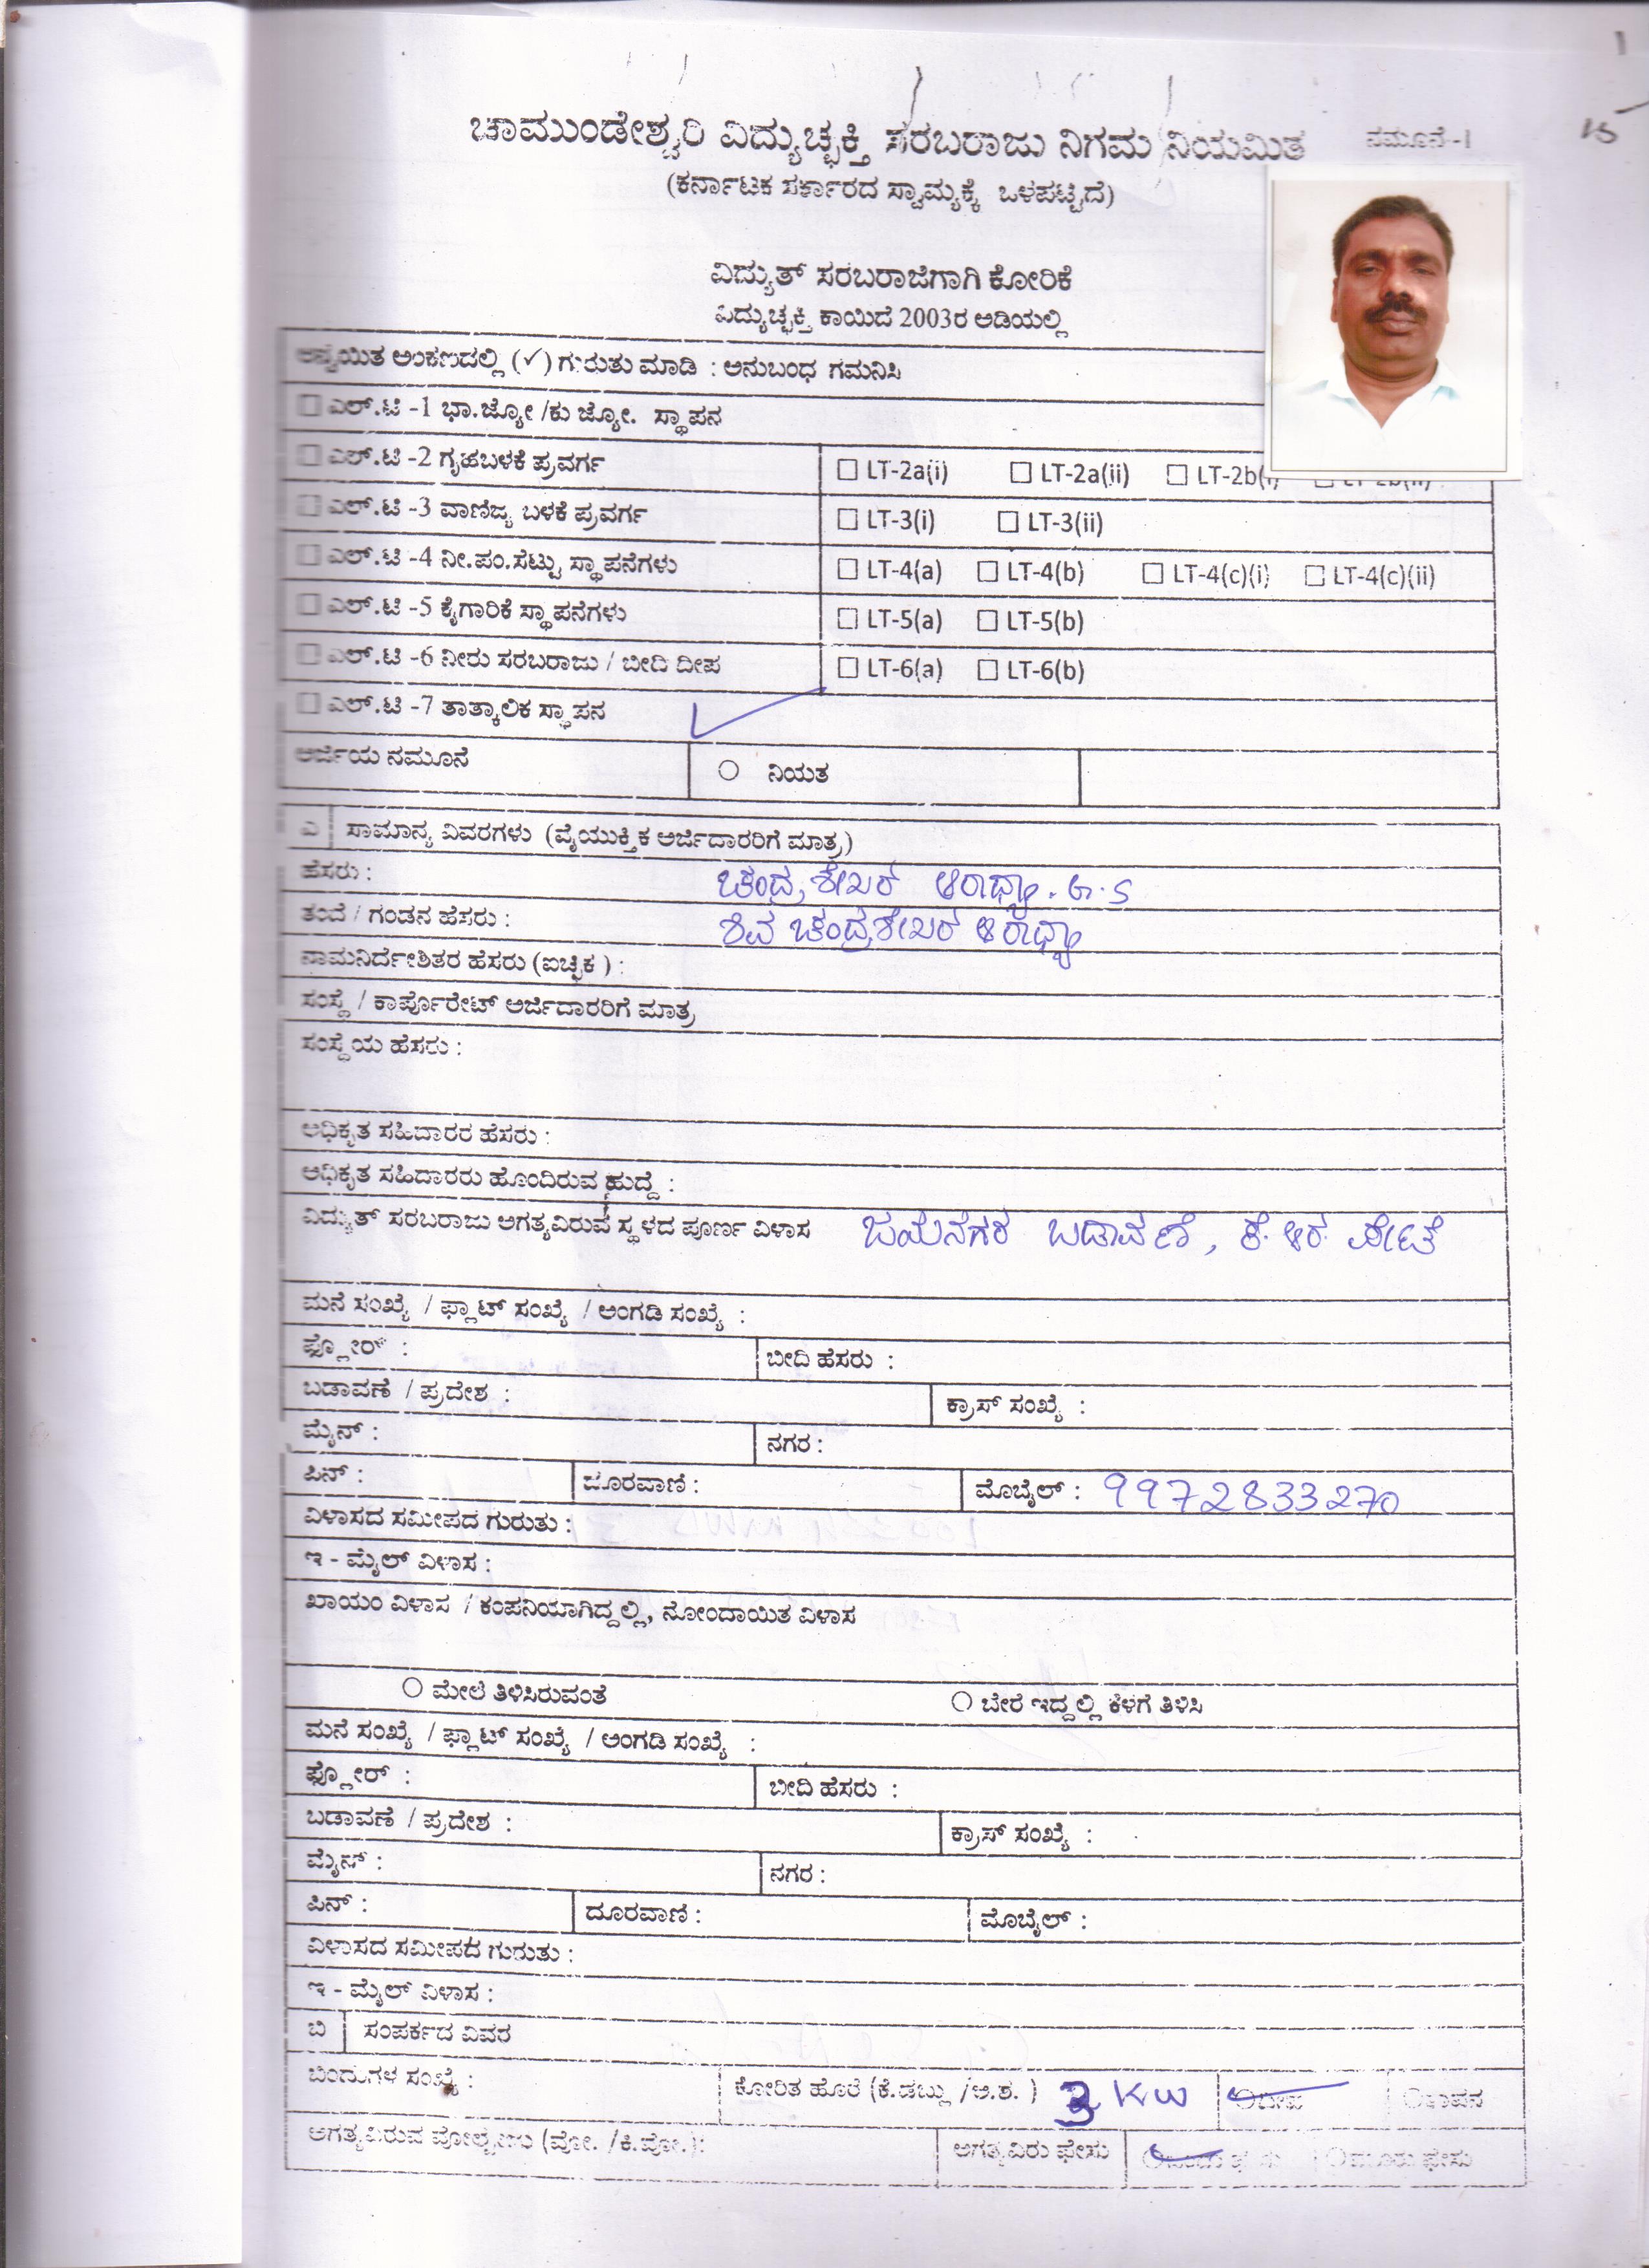 ನಮೂನೆ-1
15
ಚಾಮುಂಡೇಶ್ವರಿ ವಿದ್ಯುಚ್ಛಕ್ತಿ ಸರಬರಾಜು ನಿಗಮ ನಿಯಮಿತ
(ಕರ್ನಾಟಕ ಸರ್ಕಾರದ ಸ್ವಾಮ್ಯಕ್ಕೆ ಒಳಪಟ್ಟಿದೆ)
ವಿದ್ಯುತ್ ಸರಬರಾಜೆಗಾಗಿ ಕೋರಿಕೆ
ವಿದ್ಯುಚ್ಛಕ್ತಿ ಕಾಯಿದೆ 2003ರ ಅಡಿಯಲ್ಲಿ
ಅನ್ವಯಿತ ಅಂಕಣದಲ್ಲಿ (✓) ಗುರುತು ಮಾಡಿ : ಅನುಬಂಧ ಗಮನಿಸಿ
☐ ಎಲ್.ಟಿ -1 ಭಾ.ಜ್ಯೋ /ಕು ಜ್ಯೋ. ಸ್ಥಾಪನ
☐ ಎಲ್.ಟಿ -2 ಗೃಹಬಳಕೆ ಪ್ರವರ್ಗ ☐ LT-2a(i) ☐ LT-2a(ii) ☐ LT-2b(i)
☐ ಎಲ್.ಟಿ -3 ವಾಣಿಜ್ಯ ಬಳಕೆ ಪ್ರವರ್ಗ ☐ LT-3(i) ☐ LT-3(ii)
☐ ಎಲ್.ಟಿ -4 ನೀ.ಪಂ.ಸೆಟ್ಟು ಸ್ಥಾಪನೆಗಳು ☐ LT-4(a) ☐ LT-4(b) ☐ LT-4(c)(i) ☐ LT-4(c)(ii)
☐ ಎಲ್.ಟಿ -5 ಕೈಗಾರಿಕೆ ಸ್ಥಾಪನೆಗಳು ☐ LT-5(a) ☐ LT-5(b)
☐ ಎಲ್.ಟಿ -6 ನೀರು ಸರಬರಾಜು / ಬೀದಿ ದೀಪ ☐ LT-6(a) ☐ LT-6(b)
☐ ಎಲ್.ಟಿ -7 ತಾತ್ಕಾಲಿಕ ಸ್ಥಾಪನ
ಅರ್ಜಿಯ ನಮೂನೆ ○ ನಿಯತ
ಎ ಸಾಮಾನ್ಯ ವಿವರಗಳು (ವೈಯುಕ್ತಿಕ ಅರ್ಜಿದಾರರಿಗೆ ಮಾತ್ರ)
ಹೆಸರು : ಚಂದ್ರಶೇಖರ ಆರಾಧ್ಯಾ. G.S
ತಂದೆ / ಗಂಡನ ಹೆಸರು : ಶಿವ ಚಂದ್ರಶೇಖರ ಆರಾಧ್ಯಾ
ನಾಮನಿರ್ದೇಶಿತರ ಹೆಸರು (ಐಚ್ಛಿಕ ) :
ಸಂಸ್ಥೆ / ಕಾರ್ಪೊರೇಟ್ ಅರ್ಜಿದಾರರಿಗೆ ಮಾತ್ರ
ಸಂಸ್ಥೆಯ ಹೆಸರು :
ಅಧಿಕೃತ ಸಹಿದಾರರ ಹೆಸರು :
ಅಧಿಕೃತ ಸಹಿದಾರರು ಹೊಂದಿರುವ ಹುದ್ದೆ :
ವಿದ್ಯುತ್ ಸರಬರಾಜು ಅಗತ್ಯವಿರುವ ಸ್ಥಳದ ಪೂರ್ಣ ವಿಳಾಸ ಜಯನಗರ ಬಡಾವಣೆ, ಕೆ.ಆರ್ ಪೇಟೆ
ಮನೆ ಸಂಖ್ಯೆ / ಫ್ಲಾಟ್ ಸಂಖ್ಯೆ / ಅಂಗಡಿ ಸಂಖ್ಯೆ :
ಫ್ಲೋರ್ : ಬೀದಿ ಹೆಸರು :
ಬಡಾವಣೆ / ಪ್ರದೇಶ : ಕ್ರಾಸ್ ಸಂಖ್ಯೆ :
ಮೈನ್ : ನಗರ :
ಪಿನ್ : ದೂರವಾಣಿ : ಮೊಬೈಲ್ : 9972833270
ವಿಳಾಸದ ಸಮೀಪದ ಗುರುತು :
ಇ - ಮೈಲ್ ವಿಳಾಸ :
ಖಾಯಂ ವಿಳಾಸ / ಕಂಪನಿಯಾಗಿದ್ದಲ್ಲಿ, ನೋಂದಾಯಿತ ವಿಳಾಸ
○ ಮೇಲೆ ತಿಳಿಸಿರುವಂತೆ ○ ಬೇರೆ ಇದ್ದಲ್ಲಿ ಕೆಳಗೆ ತಿಳಿಸಿ
ಮನೆ ಸಂಖ್ಯೆ / ಫ್ಲಾಟ್ ಸಂಖ್ಯೆ / ಅಂಗಡಿ ಸಂಖ್ಯೆ :
ಫ್ಲೋರ್ : ಬೀದಿ ಹೆಸರು :
ಬಡಾವಣೆ / ಪ್ರದೇಶ : ಕ್ರಾಸ್ ಸಂಖ್ಯೆ :
ಮೈನ್ : ನಗರ :
ಪಿನ್ : ದೂರವಾಣಿ : ಮೊಬೈಲ್ :
ವಿಳಾಸದ ಸಮೀಪದ ಗುರುತು :
ಇ - ಮೈಲ್ ವಿಳಾಸ :
ಬಿ ಸಂಪರ್ಕದ ವಿವರ
ಬಿಂದುಗಳ ಸಂಖ್ಯೆ : ಕೋರಿತ ಹೊರೆ (ಕೆ.ಡಬ್ಲು /ಅ.ಶ. ) 3 KW ○ದೀಪ
ಅಗತ್ಯವಿರುವ ವೋಲ್ಟೇಜು (ವೋ. /ಕಿ.ವೋ.): ಅಗತ್ಯವಿರು ಫೇಸು ○ಮೂರು ಫೇಸು